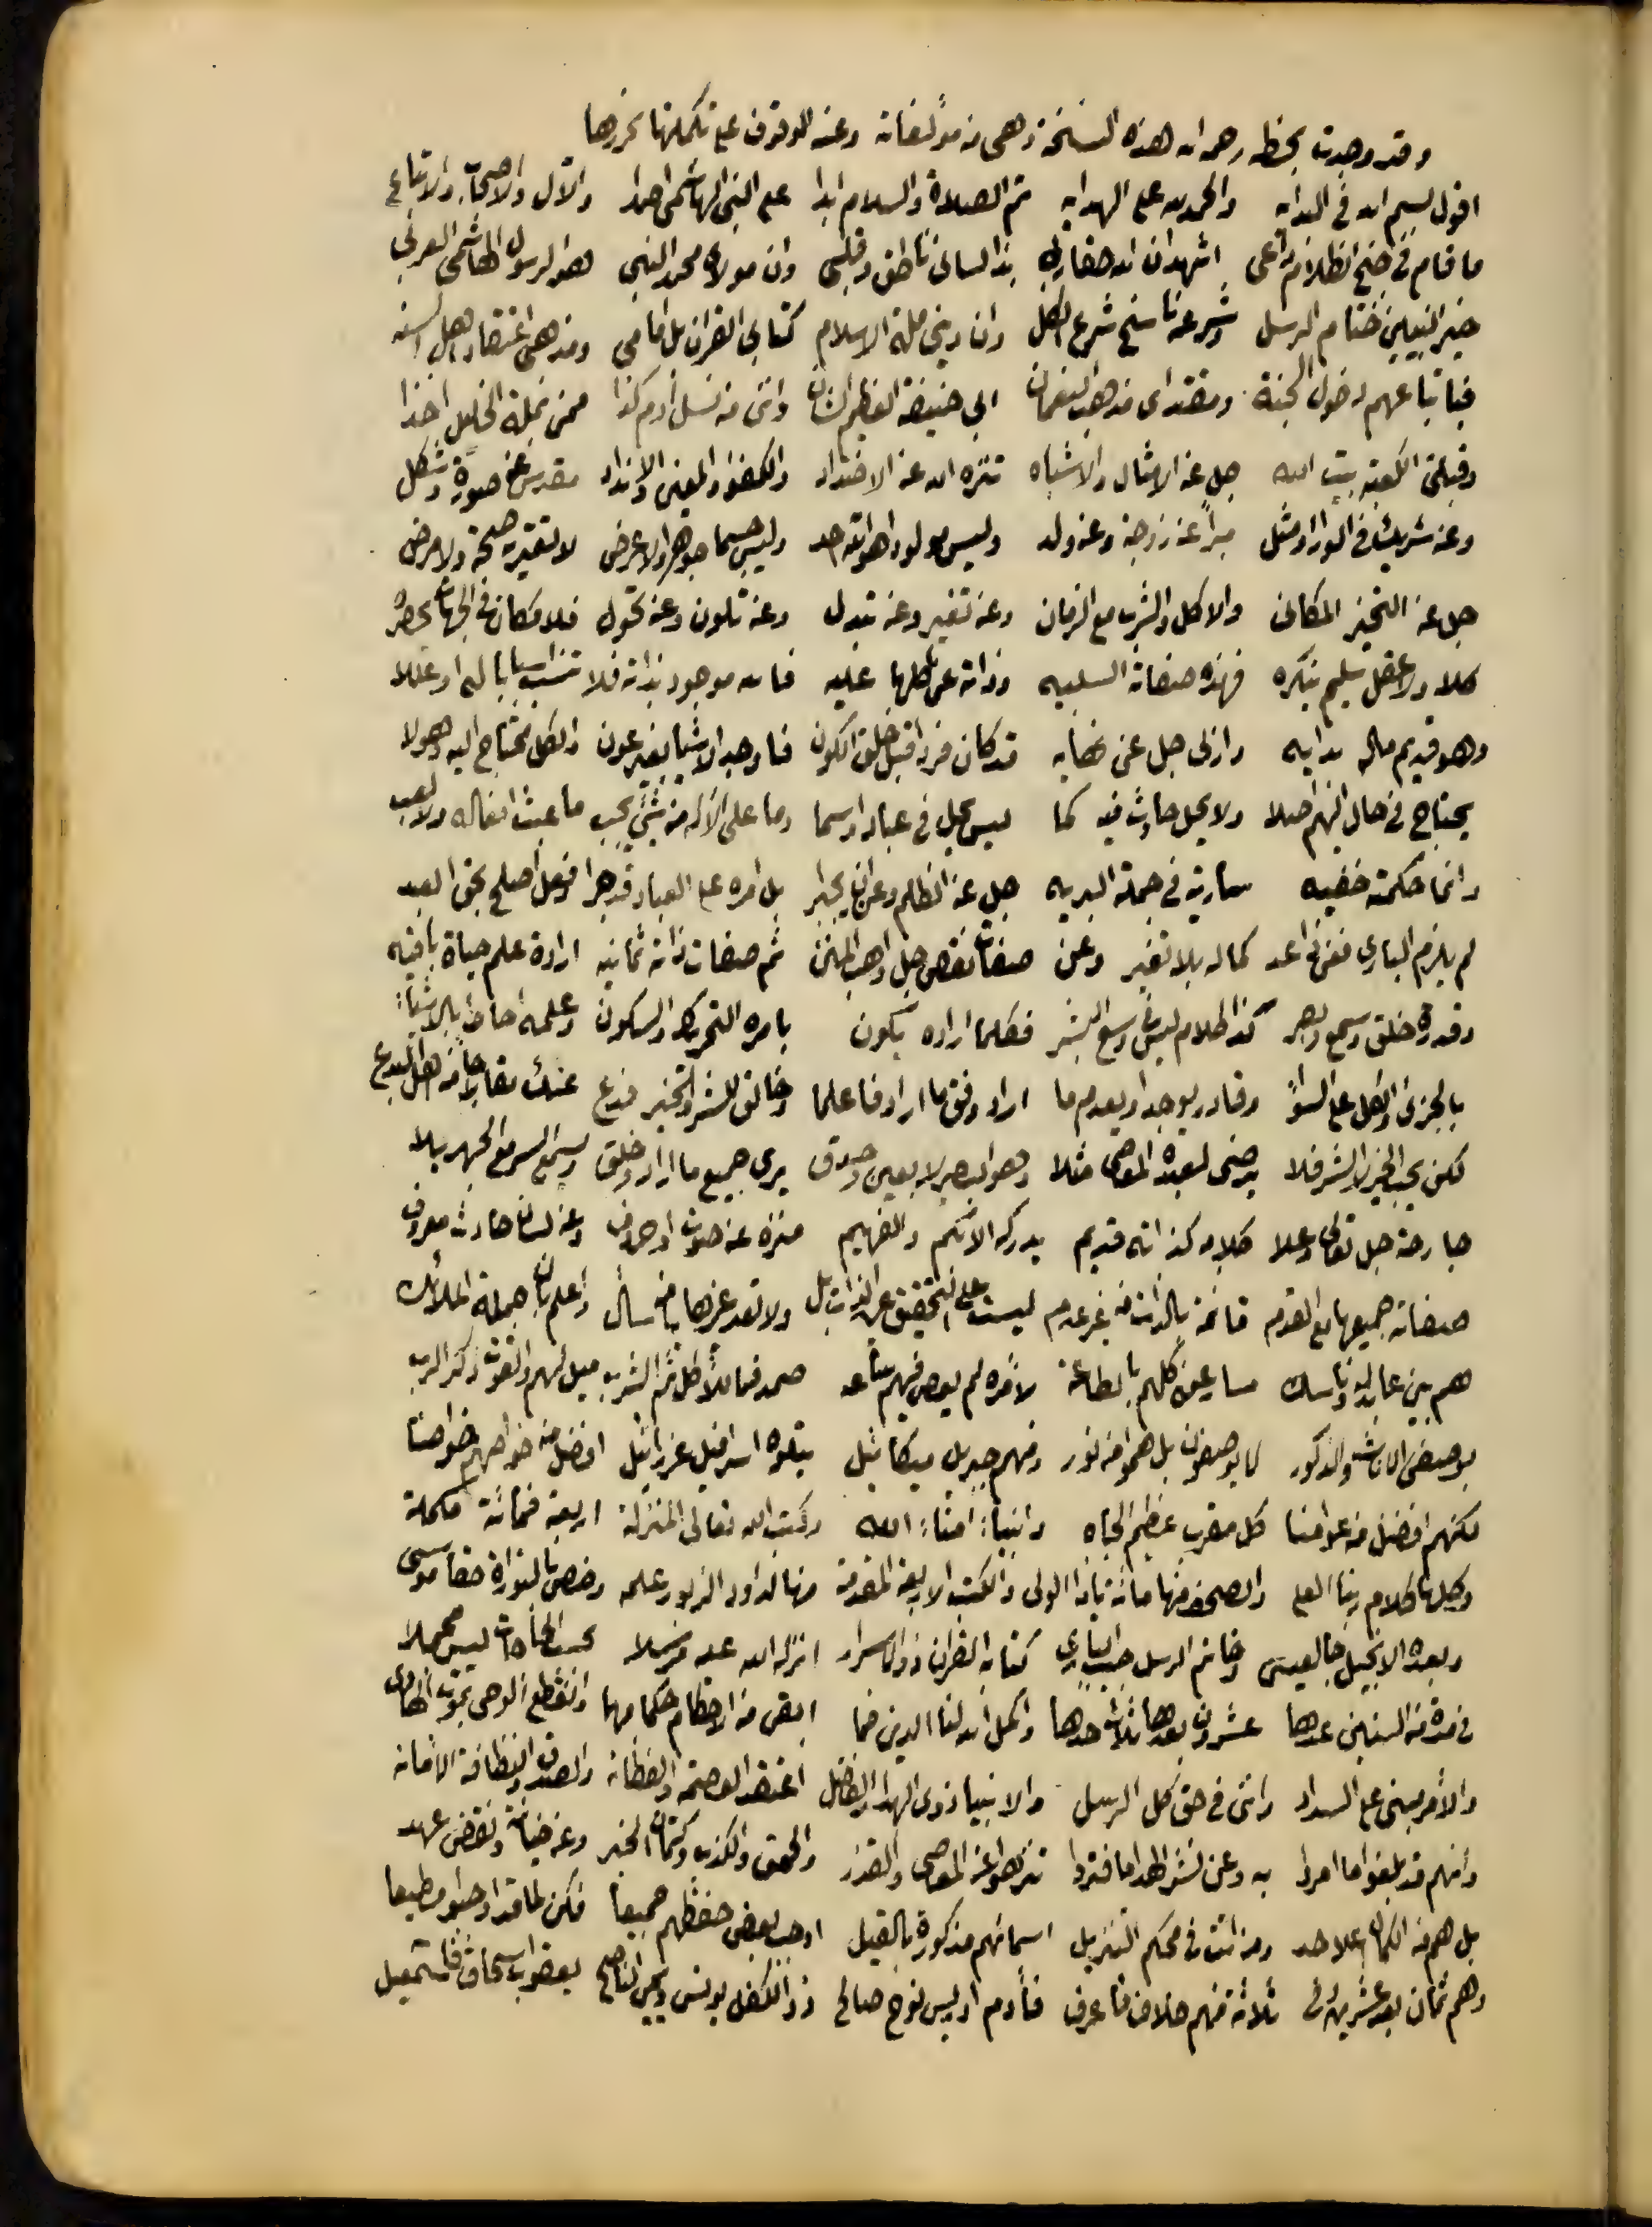 وقد وجدت بخطه رحمه الله هذه النسخة وهي من مؤلفاته وعند الوقوف على تكملتها نحررها
اقول بسم الله في البدايه والحمد لله على الهدايه ثم الصلاة والسلام ابدا على النبي الهاشمي احمدا والآل والاصحاب والاتباع
ما قام في جنح الظلام داعى اشهد ان الله حقا ربي بذا لساني ناطق وقلبي وان مولاي محمد النبي هو الرسول الهاشمي العربي
خير النبيين ختام الرسل وشرعه ناسخ شرع الكل وان ديني ملة الاسلام كتابي القران بل امامي ومذهبي اعتقاد اهل السنه
في اتباعهم دخول الجنة ومقتداى مذهب النعمان ابي حنيفة العظيم الشان وانني من نسل آدم كذا ممن بملة الخليل اخذا
وقبلتي الكعبة بيت الله جل عن الامثال والاشباه تنزه الله عن الاضداد والكفؤ والمعين والانداد مقدس عن صورة وشكل
وعن شريك في الورا ومثل مبرأ عن زوجة وعن ولد وليس مولودا هو الله احد وليس جسما جوهرا ولا عرض لا تعتريه صحة ولا مرض
جل عن التحيز المكاني والاكل والشرب مع الزمان وعن تغير وعن تبدل وعن تلون وعن تحول فلا مكان في الجهات يحصره
كلا ولا عقل سليم ينكره فهذه صفاته السلبيه وذاته عن كلها عليه فالله موجود بذاته فلا تنسب اسبابا له او عللا
وهو قديم ماله بدايه وازلي جل عن نهايه قد كان فردا قبل خلق الكون فاوجد الاشيا بغير عون والكل محتاج اليه وهو لا
يحتاج في حال اليهم اصلا ولا يحل حادث فيه كما ليس يحل في عباد او سما وما على الاله من شيء يجب ما عبث افعاله ولا لعب
وانما حكمته خفيه سارية في جملة البريه جل عن الظلم وعن ان يجبر بل امره على العباد قد جرا وفعل اصلح بحق العبد
لم يلزم الباري فعن ذا عد كماله بلا تغير وعن صفات نقص جل واهب المنن ثم صفات ذاته ثمانيه ارادة علم حياة باقيه
وقدرة خلق وسمع وبصر كذا كلام ليس وسع البشر فكلما اراده يكون بامره التحريك والسكون وعلمه احاط بالاشياء
بالجزئي والكل على السواء وقادر يوجد او يعدم ما اراد وفق ما اراد فاعلما وخالق للشر والخير فدع عنك مقال جامن اهل البدع
لكن يحب الخير لا الشر فلا يرضى لعبده المعاصي مثلا وهو البصير لا بعين وحدق يرى جميع ما اراد وخلق ويسمع السر مع الجهر بلا
جارحة جل تعالى وعلا كلامه كذاته قديم يدركه الابكم والفهيم منزه عن صوت او حروف وعن لسان حادث معروف
صفاته جميعها مع القدم قائمة بالذات من غير عدم ليست على التحقيق عين الذات بل ولا تعد غيرها يا من سأل واعلم بان جملة الملائك
هم بين عابد وناسك مسارعون كلهم بالطاعة لامره لم يعص فيهم ساعه صمد فما للاكل ثم الشرب ميل لهم والقوت ذكر الرب
بوصفي الاناث والذكور لا يوصفون بل همو من نور ومنهم جبريل ميكائيل يتلوه اسرافيل عزرائيل افضل من خواصهم خواصنا
لكنهم افضل من عوامنا كل مقرب عظيم الجاه وانبياء امناء الله وكتب الله تعالى المنزلة اربعة فمائة مكملة
وكلها كلام ربنا العلي والصحف منها مائة ياذا الولي والكتب الاربعة المقدمة منها لداود الزبور علمه وخص بالتوراة حقا موسى
وبعده الانجيل جا لعيسى وخاتم الرسل حبيب الباري كتابه القران ذو الاسرار انزله الله عليه مرسلا بحسب الحاجات ليس مجملا
في مدة من السنين عدها عشرون بعدها ثلاث حدها واكمل الله لنا الدين فما ابقى من الاحكام حكما مبهما وانقطع الوحي بموت الهادي
والامر مبني على السداد وانني في حق كل الرسل والانبيا ذوي الهدا والفضل اعتقد العصمة والفطانه والصدق والنظافة الامانه
وانهم قد بلغوا ما امروا به وعن نشر الهدا ما فتروا تنزهوا عن المعاصي والقذر والحمق والكذب وكتمان الخبر وعن خيانة ونقض عهد
بل هم من الكمال اعلا حد ومن اتت في محكم التنزيل اسمائهم مذكورة بالقيل اوجب بعض حفظهم جميعا فكن لما قد اوجبوا مطيعا
وهم ثمان بعد عشرين وفي ثلاثة منهم خلاف فاعرف فآدم ادريس نوح صالح ذو الكفل يونس ويحيى الناصح يعقوب اسحاق فاسمعيل